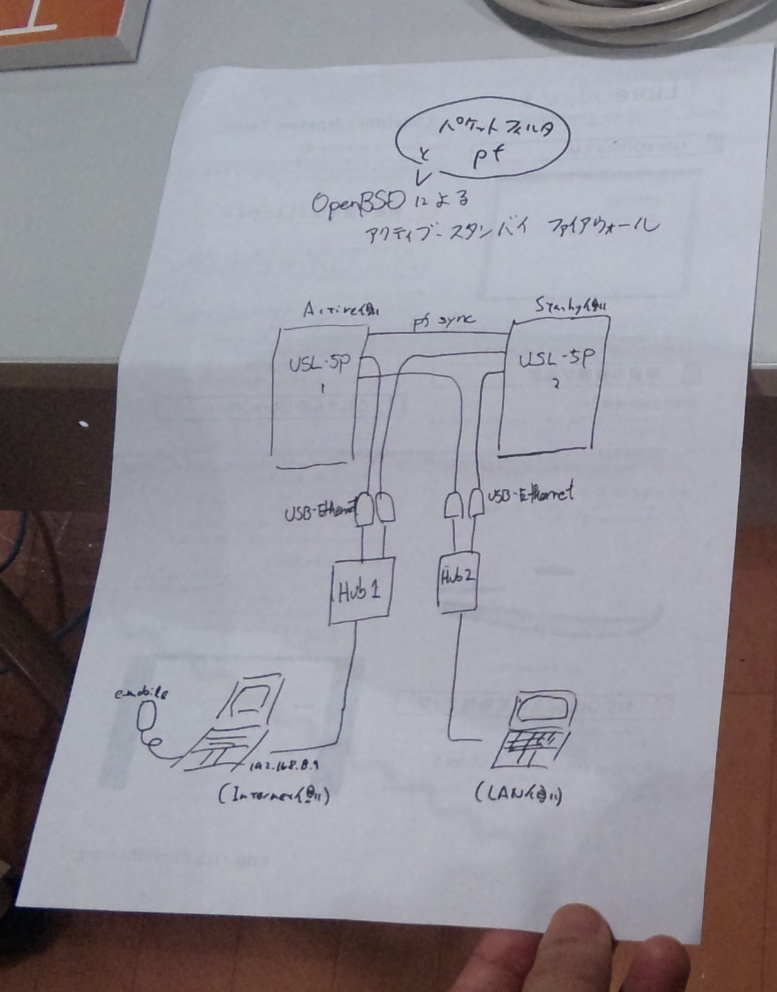 パケットフィルタ
と pf
OpenBSDによる
アクティブ-スタンバイ ファイアウォール
Active側
pf sync
Standby側
USL-5P
1
USL-5P
2
USB-Ethernet
USB-Ethernet
Hub1
Hub2
emobile
(Internet側)
(LAN側)